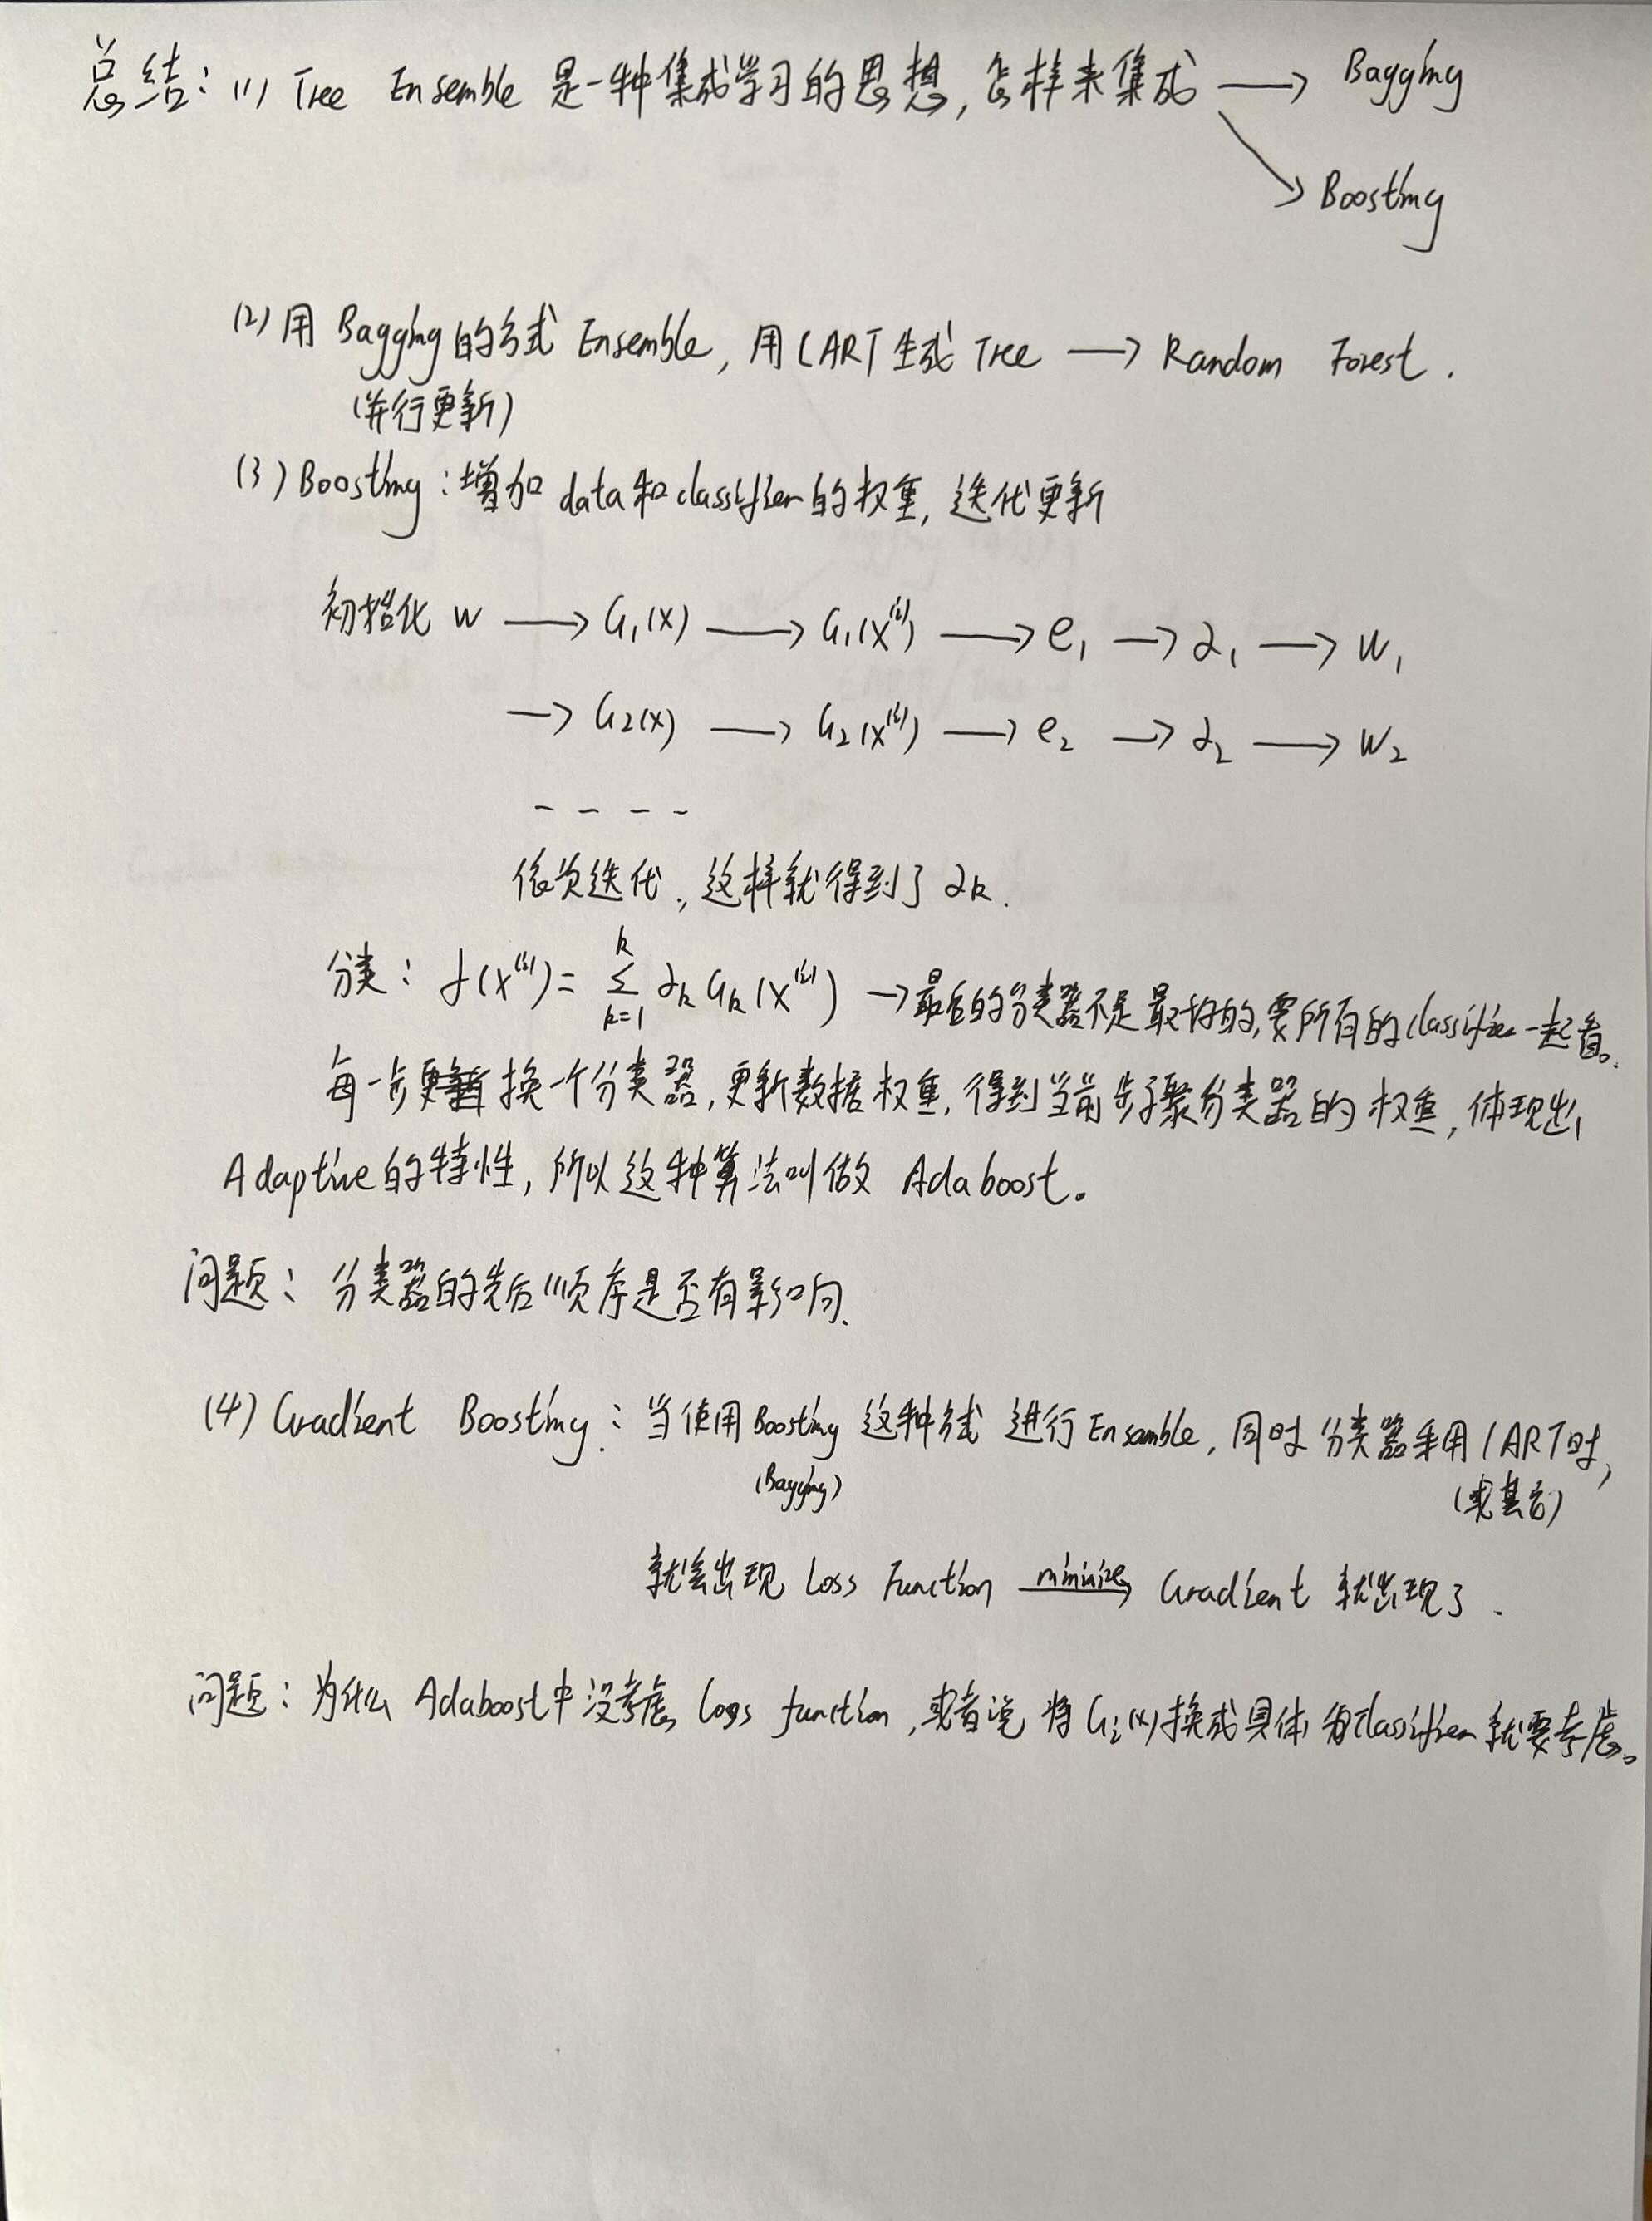 总结：(1) Tree Ensemble 是一种集成学习的思想，怎样来集成 → Bagging
↘ Boosting
(2) 用 Bagging 的方式 Ensemble，用 CART 生成 Tree → Random Forest.
(并行更新)
(3) Boosting：增加 data 和 classifier 的权重，迭代更新
初始化 w → G₁(x) → G₁(x⁽ⁱ⁾) → e₁ → α₁ → w₁
→ G₂(x) → G₂(x⁽ⁱ⁾) → e₂ → α₂ → w₂
- - - -
依次迭代，这样就得到了 αk.
分类：f(x⁽ⁱ⁾) = Σ_{k=1}^{k} αk Gk(x⁽ⁱ⁾) → 最后的分类器不是最好的，要所有的 classifier 一起看。
每一步更换一个分类器，更新数据权重，得到当前步骤分类器的权重，体现出
Adaptive 的特性，所以这种算法叫做 Adaboost。
问题：分类器的先后顺序是否有影响.
(4) Gradient Boosting：当使用 Boosting 这种方式 进行 Ensamble，同时 分类器采用 CART 时，
(Bagging) (或其它)
就会出现 Loss Function —minimize→ Gradient 就出现了.
问题：为什么 Adaboost 中没考虑 loss function，或者说 将 Gᵢ(x) 换成具体的 classifier 就要考虑。